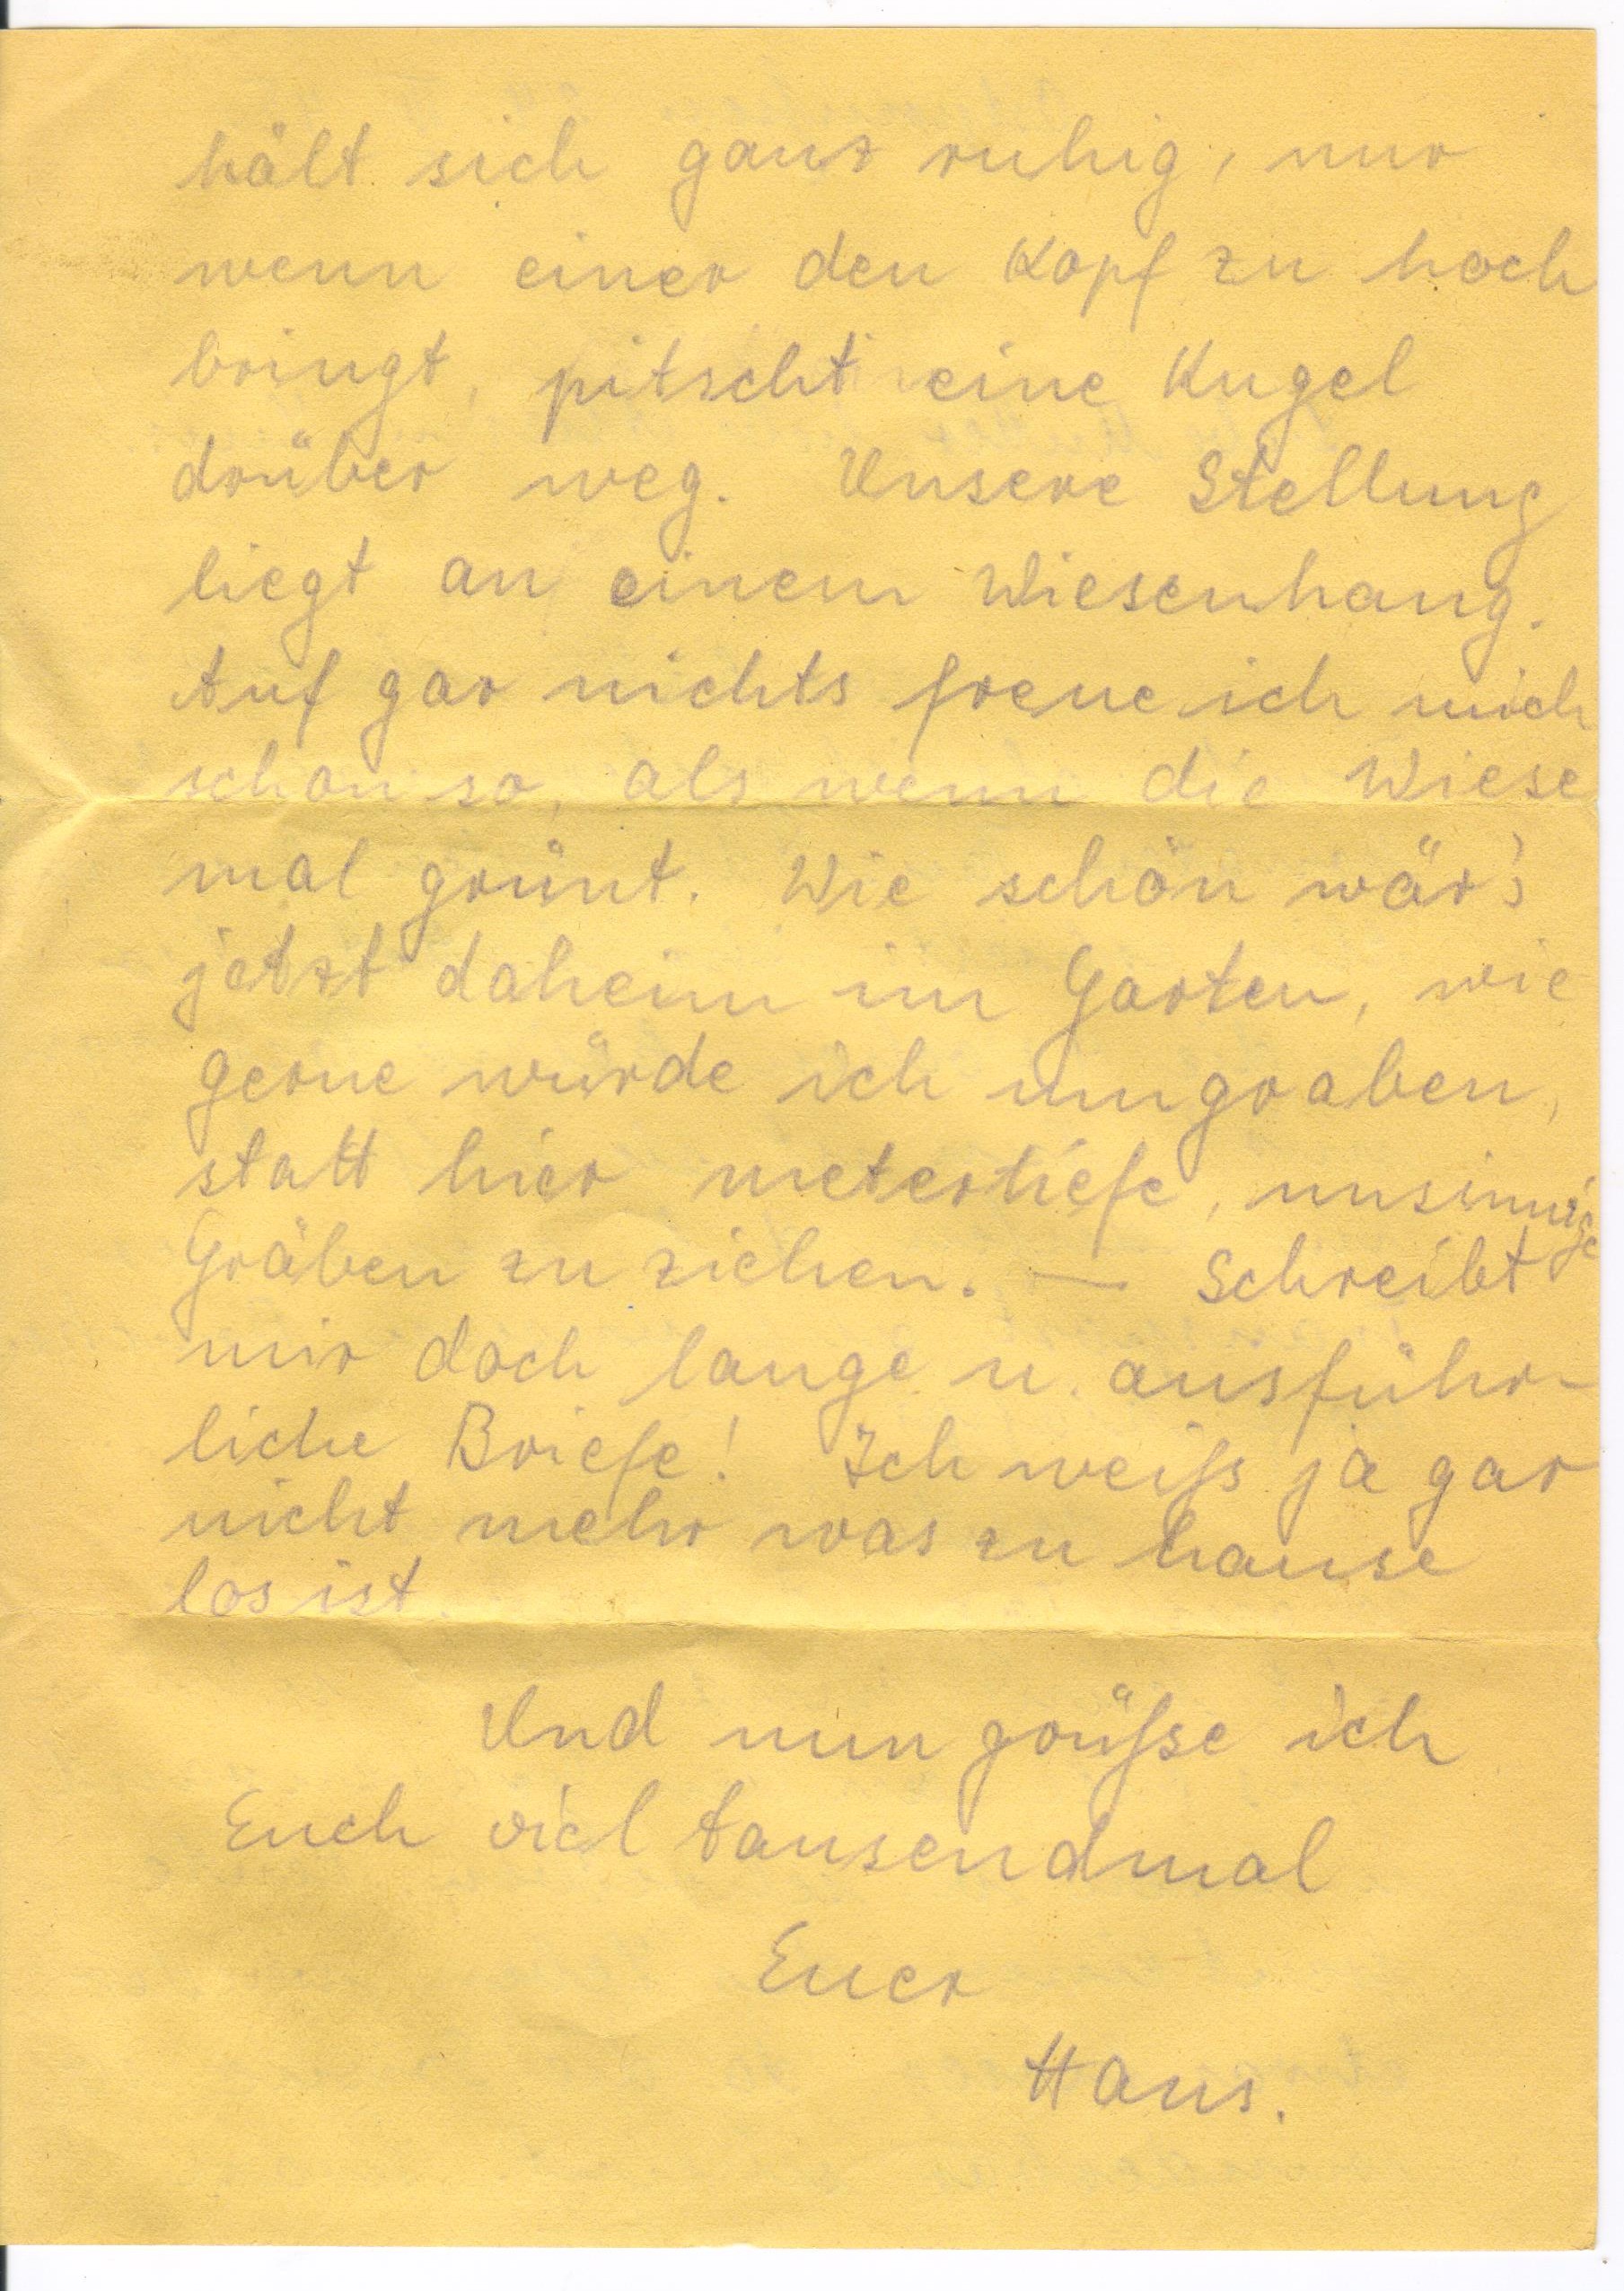 hält sich ganz ruhig, nur
wenn einer den Kopf zu hoch
bringt, pitscht eine Kugel
drüber weg. Unsere Stellung
liegt an einem Wiesenhang.
Auf gar nichts freue ich mich
schon so, als wenn die Wiese
mal grünt. Wie schön wär's
jetzt daheim im Garten, wie
gerne würde ich umgraben,
statt hier metertiefe, unsinnige
Gräben zu ziehen. — Schreibt
mir doch lange u. ausführ-
liche Briefe! Ich weiß ja gar
nicht mehr was zu hause
los ist.
Und nun grüße ich
Euch viel tausendmal
Euer
Hans.